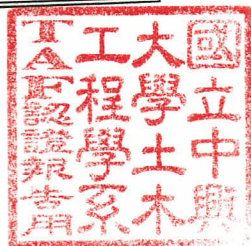 國立中興
大學土木
工程學系
TAF認證報告用